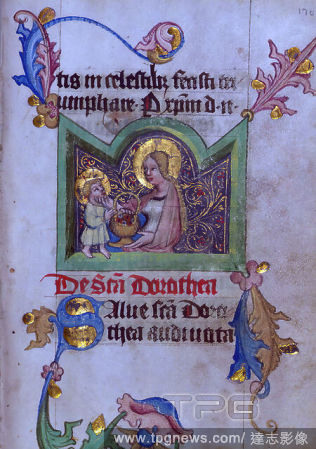 170
tis in celestibz fecisti tri
umphare · P xpm d · n ·
De Scā Dorothea
Salue scā Doro
thea audi vota
TPG
www.tpgnews.com / 達志影像